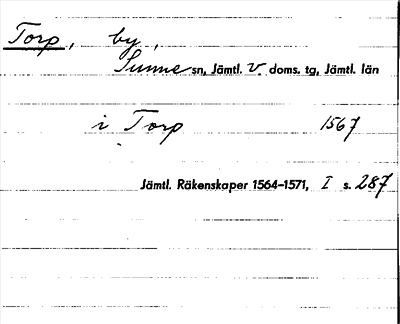 Torp, by,
Sunne sn, Jämtl. V. doms. tg, Jämtl. län
i Torp 1567
Jämtl. Räkenskaper 1564–1571, I s. 287